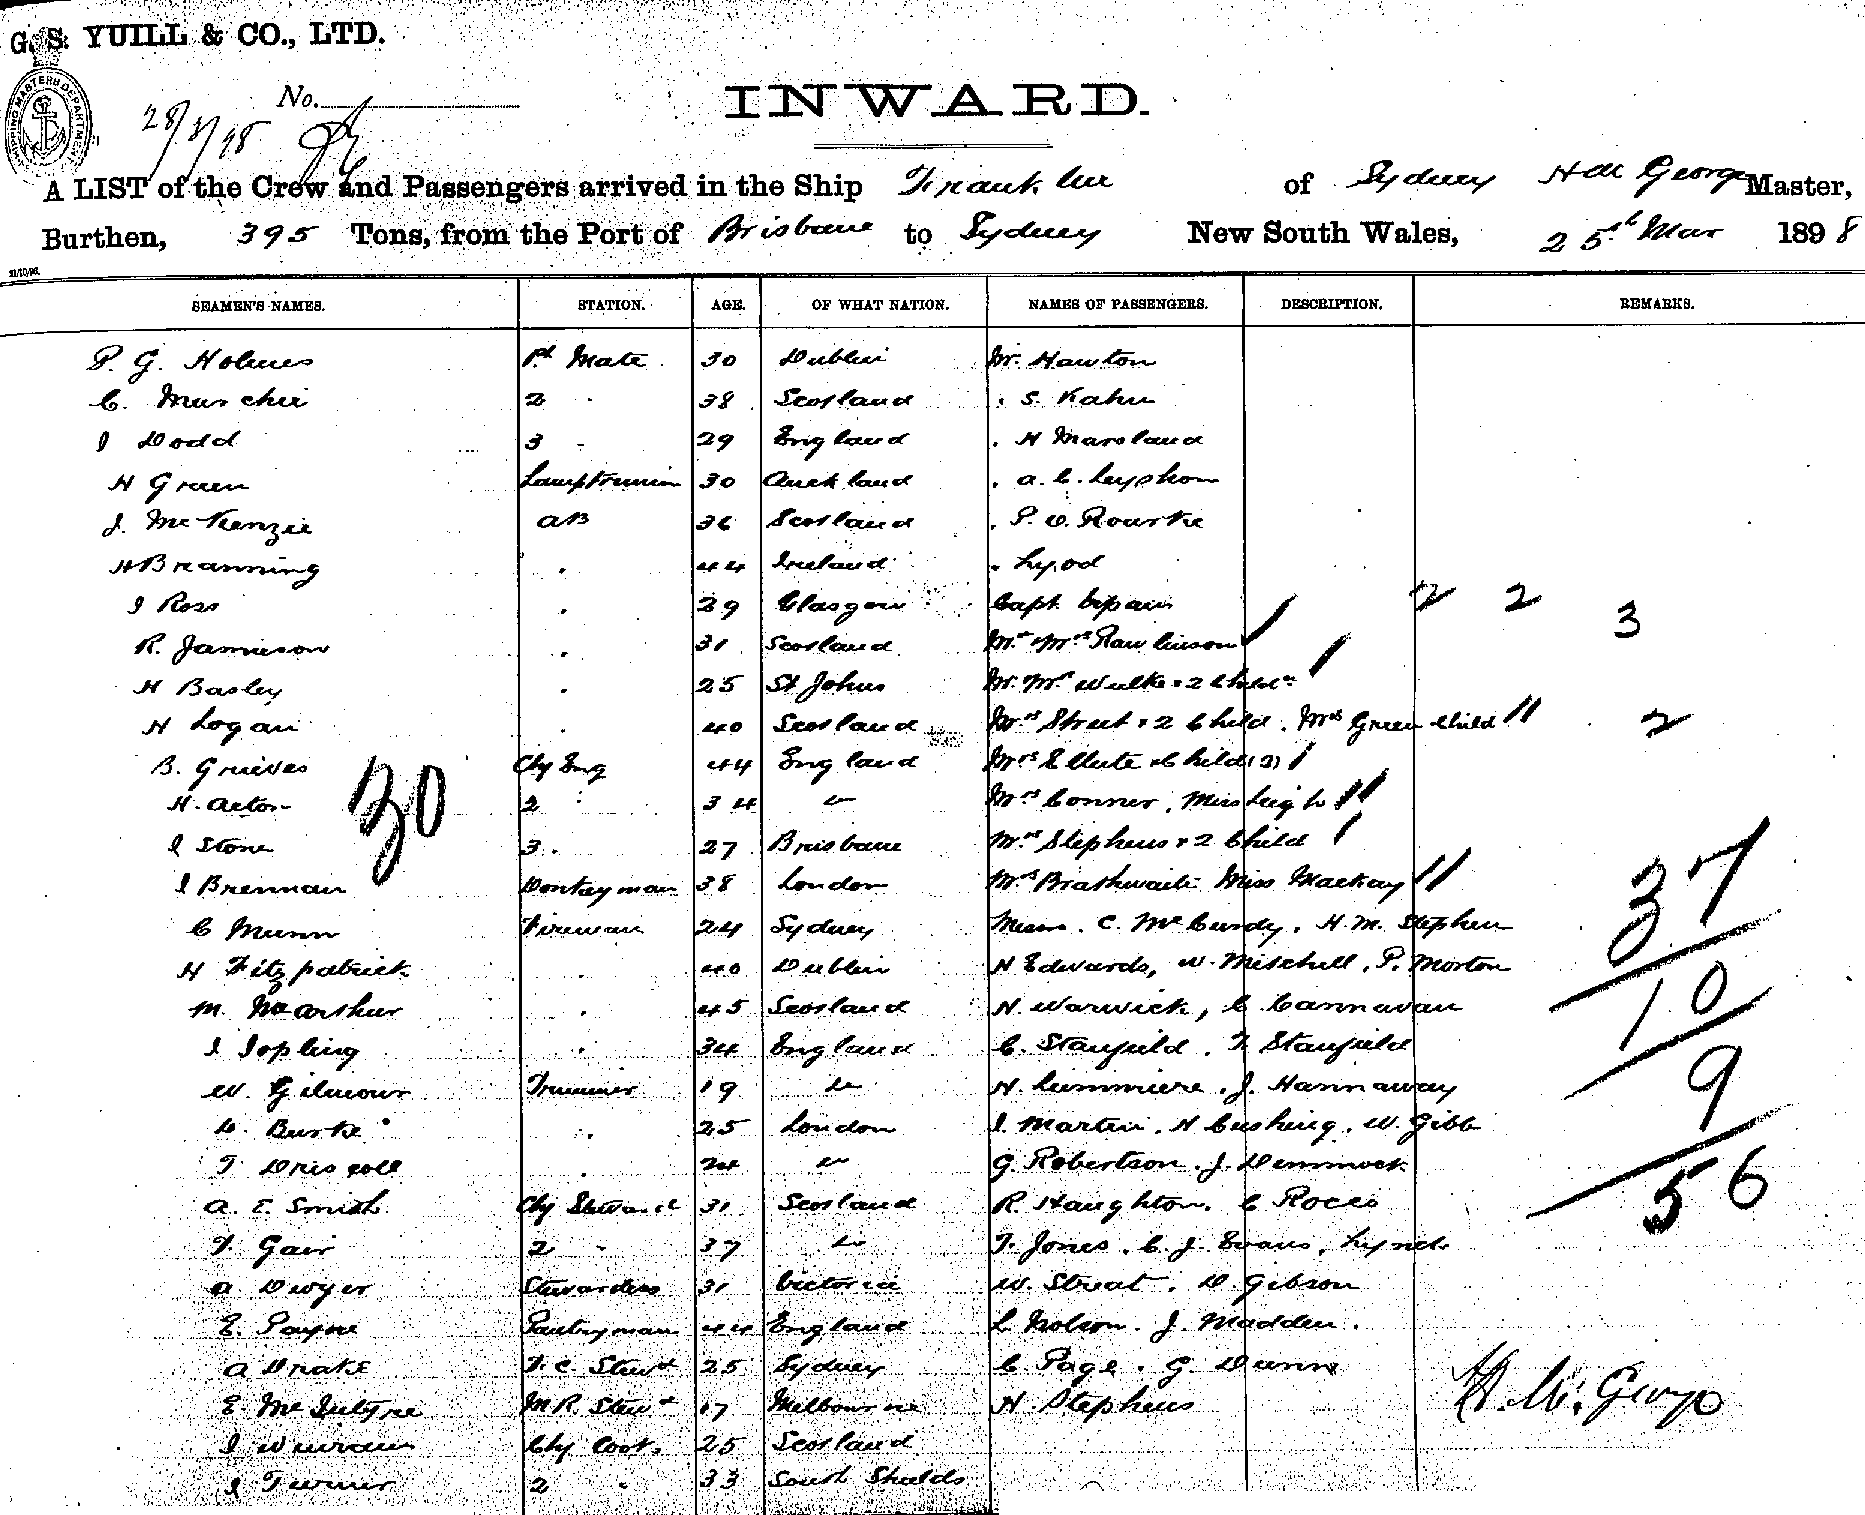 G. S. YUILL & CO., LTD.
SHIPPING MASTER'S DEPARTMENT
No.
28/3/98
INWARD.
A LIST of the Crew and Passengers arrived in the Ship of Sydney George Master,
Burthen, 395 Tons, from the Port of Brisbane to Sydney New South Wales, 25th Mar 1898
SEAMEN'S NAMES. STATION. AGE. OF WHAT NATION. NAMES OF PASSENGERS. DESCRIPTION. REMARKS.
P. G. Holmes 1st Mate 30 Dublin Mr. Hawton
C. Murchie 2 " 38 Scotland " S. Kahn
J Dodd 3 " 29 England " H Marsland
H Green Lamptrimmer 30 Auckland " A. C.
J. McKenzie AB 36 Scotland " P. O. Rourke
H Branning " 44 Ireland "
J Ross " 29 Glasgow Capt. 2 2 3
R. Jamieson " 31 Scotland Mr & Mrs Rawlinson
H Basley " 25 St Johns Mr Mrs & 2 Child
H Logan " 40 Scotland Mrs Street & 2 Child. Mrs Green Child 2
B. Grieves Chf Eng 44 England Mrs & Child (2)
H. Acton 2 " 34 " Mrs Conner, Miss Leigh
30
J Stone 3 " 27 Brisbane Mrs Stephens & 2 Child
J Brennan Donkeyman 38 London Mrs Brathwaite Miss Mackay 37
C Munn Fireman 24 Sydney Messrs. C. McCurdy, H. M. Stephen
H Fitzpatrick " 40 Dublin H Edwards, W. Mitchell, P. Morton
M. McArthur " 45 Scotland H Warwick, C Cannavan 10
J Jopling " 34 England C. Stanfield. F Stanfield
W. Gilmour Trimmer 19 " H. Lummiere. J. Hannaway 9
D. Burke " 25 London J. Martin. H Cushing. W. Gibb
T Driscoll " 24 " G. Robertson. J. Demmock
A. E. Smith Chf Steward 31 Scotland R Haughton. C Rocco 56
F Gair 2 " 37 " T. Jones. C. J. Evans, Lynch
A Dwyer Stewardess 31 Victoria W. Street. D. Gibson
E. Payne Pantryman 44 England L Nolson. J. Madden.
A Drake F. C. Stewd 25 Sydney C Page. G. Dunn
E. McIntyre M R. Stewd 17 Melbourne H Stephens
J Chf Cook 25 Scotland
J Turner 2 " 33 South Shields